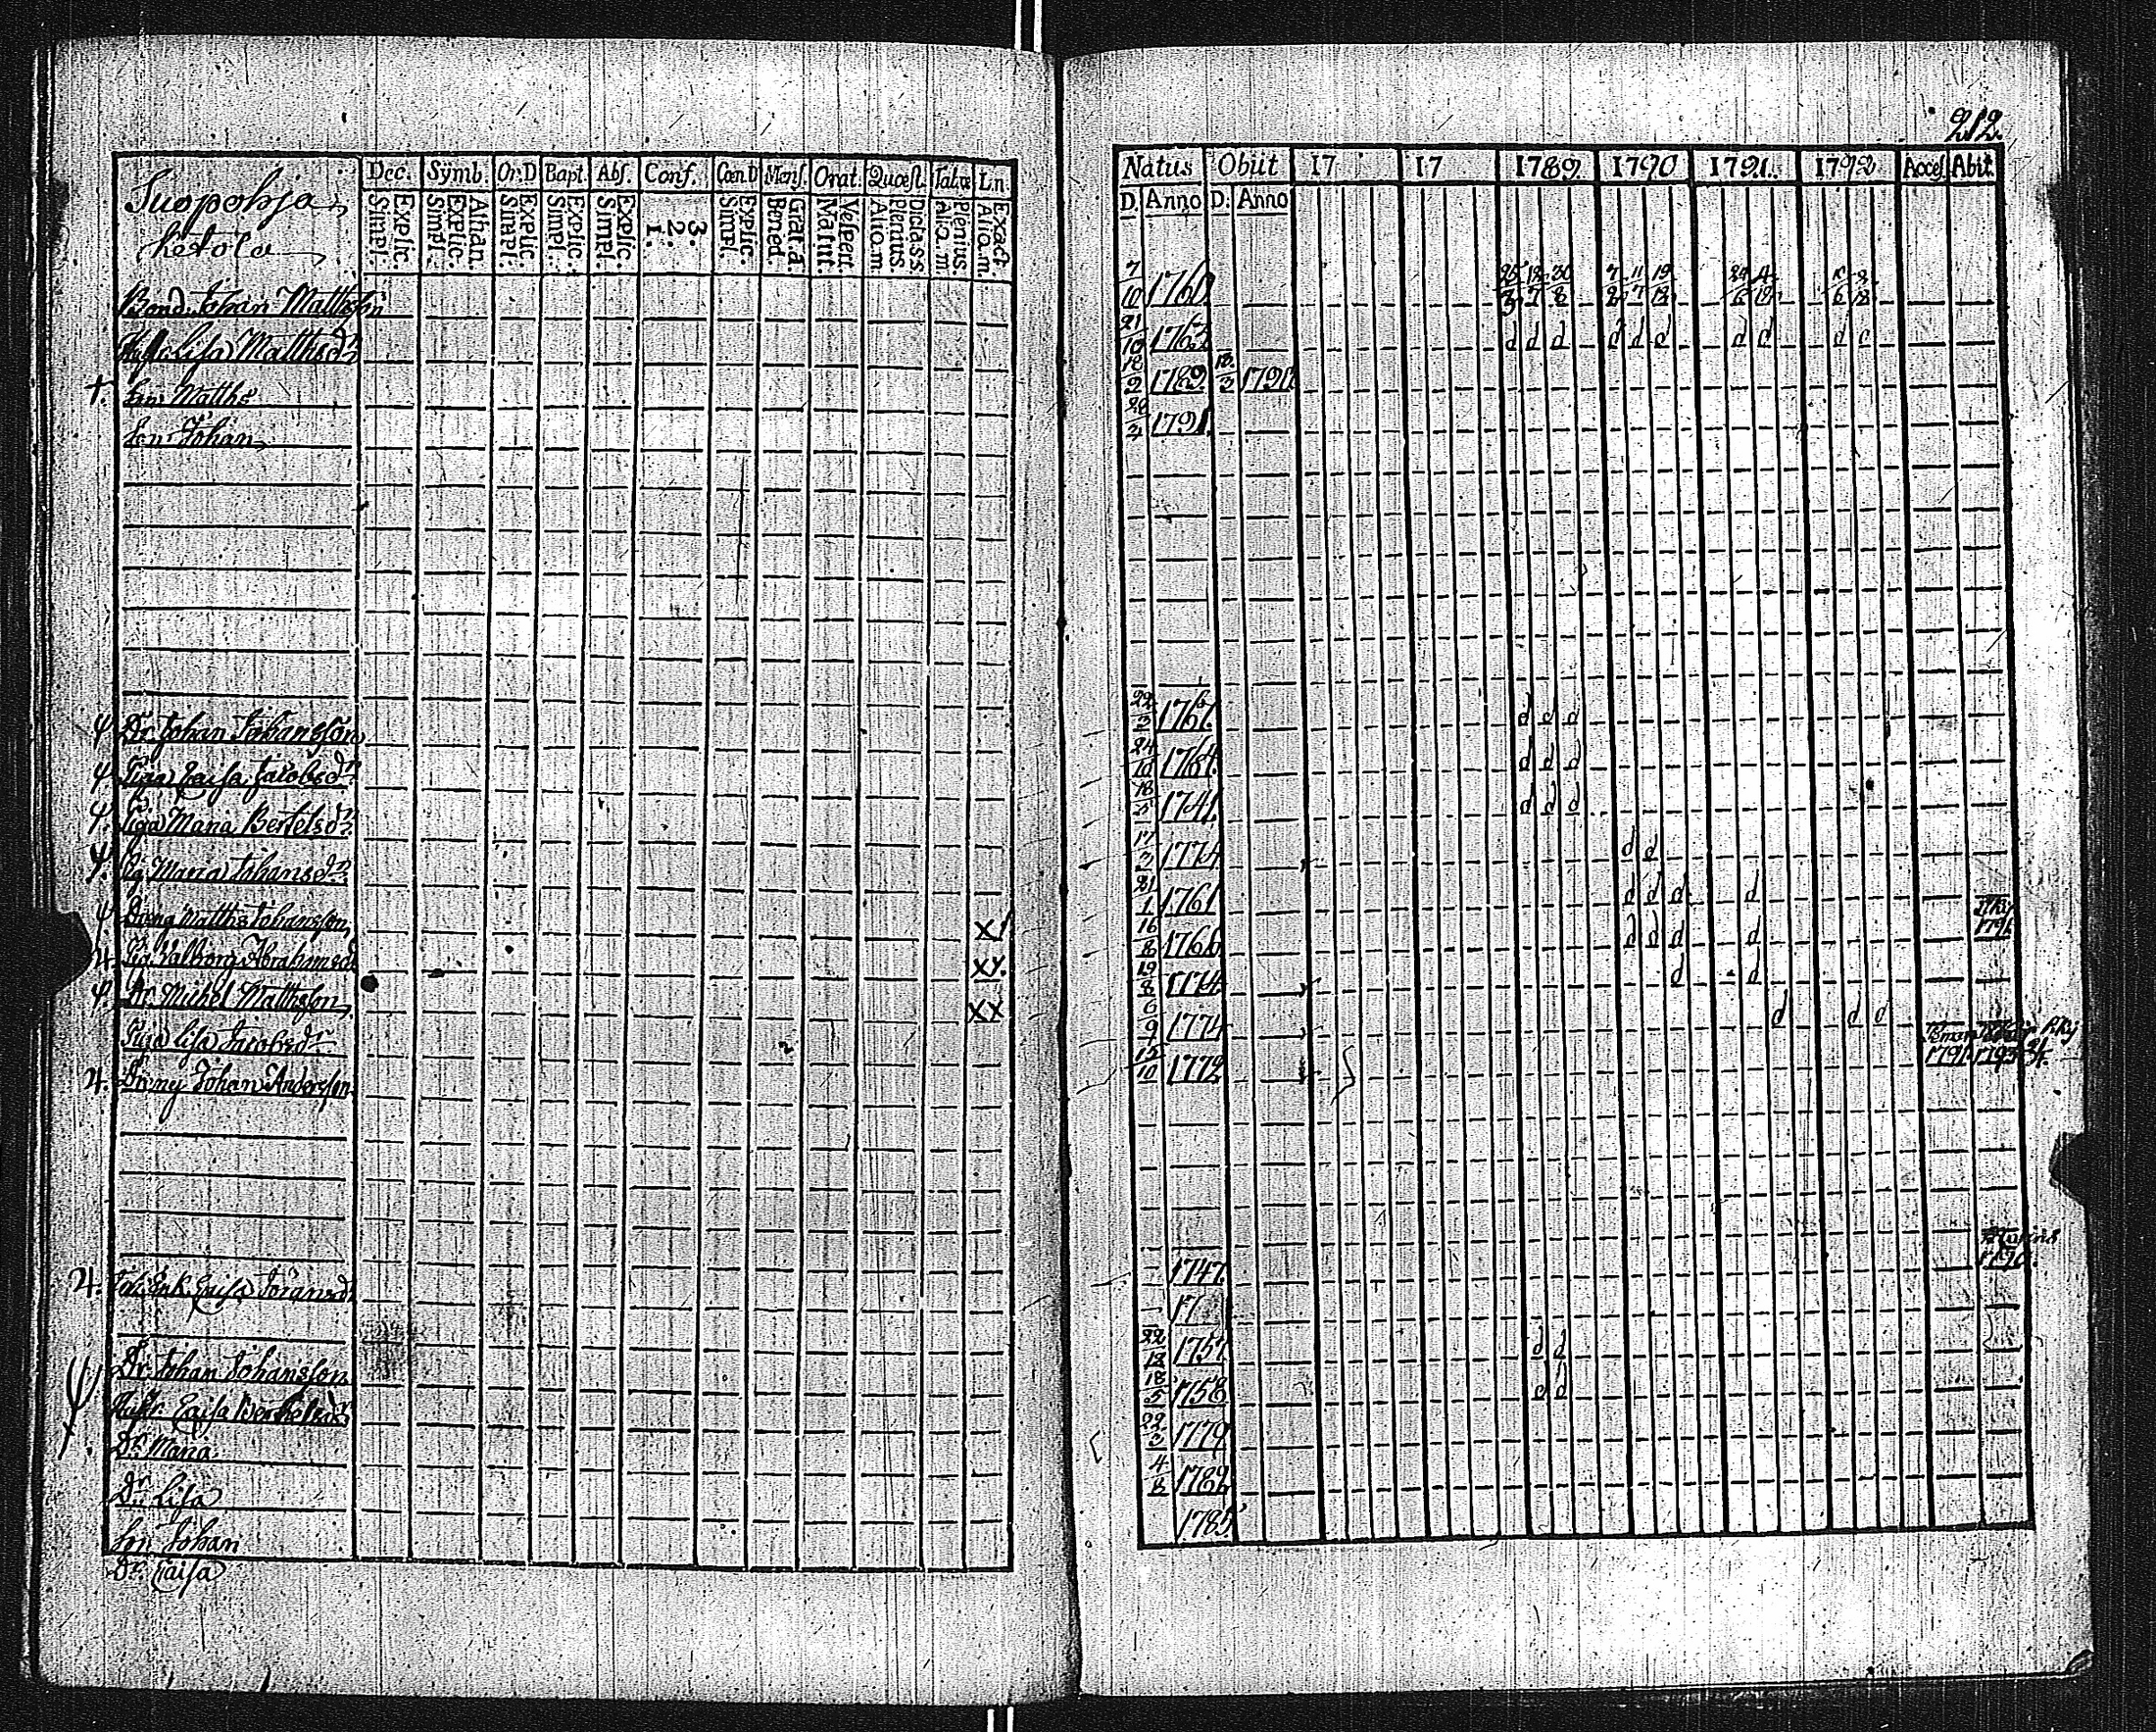 Suopohja
ketola
Dec. Symb. Or.D Bapt. Abſ. Conf. Cœn D Menſ. Orat. Quœſt. Talvæ Ln.
Explic. Simpl. Athan. Explic. Simpl. Explic. Simpl. Explic. Simpl. Explic. Simpl. 3. 2. 1. Explic. Simpl. Grat. a Bened. Veſpert. Matut. Dicta s s Plenius Aliq. m. Plenius Aliq. m. Exact. Aliq. m.
Bond. Johan Mattsſon
Lisa Mattsdr
†. Son Matths
Son Johan
Ψ Dr Johan Johansſon
Ψ Piga Caisa Jacobsdr
Ψ. Piga Maria Bertelsdr
Ψ. Pig Maria Johansdr
Ψ Dräng Matths Johansſon X/
4 Pig Valborg Abrahmsd XX.
Ψ. Dr Michel Mattsſon XX
Piga Lisa Jacobsdr
4. Dräng Johan Andersſon
4. Enk Caisa Jöransdr
Ψ Dr Johan Johansſon
Hustr Caisa Bertelsdr
Dr Maria
Dr Lisa
Son Johan
Dr Caisa
212.
Natus Obiit 17 17 1789. 1790 1791. 1792 Acceſ Abit.
D. Anno D: Anno
7/10 1760
21/10 1762 d d d d d d d d d c
18/2 1789 1790
28/4 1791
22/3 1761 d d d
24/10 1764 d d d
18/5 1741 d d d
17/3 1774 d d
21/1 1761 d d d d
16/8 1766 d d d d 1791
19/8 1774 d d
6/9 1774 d d d
1791 1793
15/10 1772
1790.
1747
17
22/12 1757 d d
18/5 1758 d d
22/3 1779
4/8 1782
1785